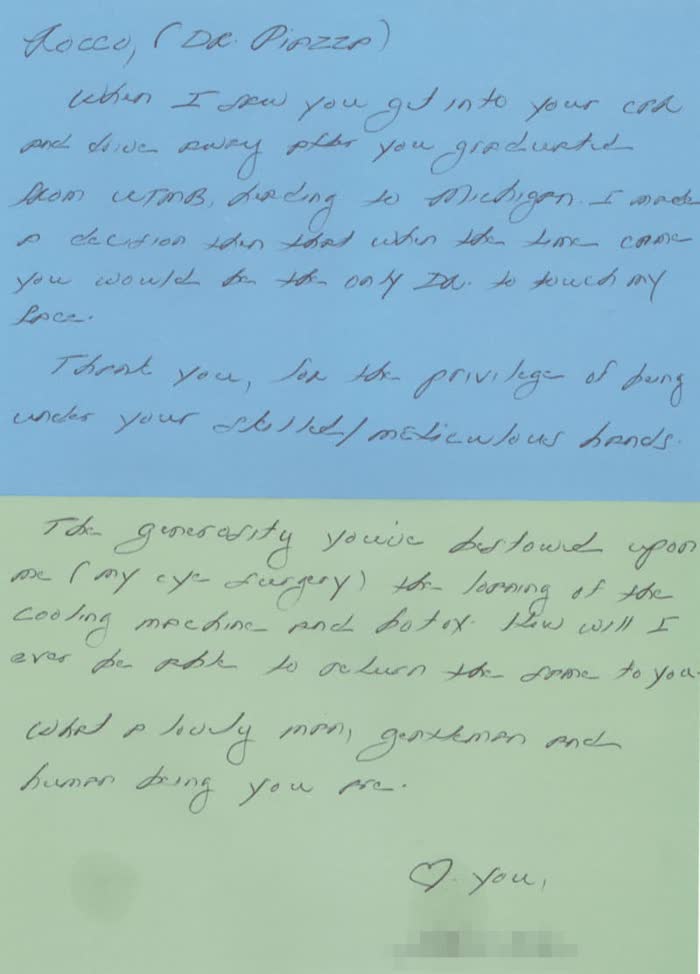 Rocco, (DR. Piazza)
When I saw you get into your car
and drive away after you graduated
from UTMB, heading to Michigan. I made
a decision then that when the time came
you would be the only DR. to touch my
face.
Thank you, for the privilege of being
under your skilled/meticulous hands.
The generosity you've bestowed upon
me (my eye surgery) the loaning of the
cooling machine and botox. How will I
ever be able to return the same to you.
What a lovely man, gentleman and
human being you are.
♡. you,